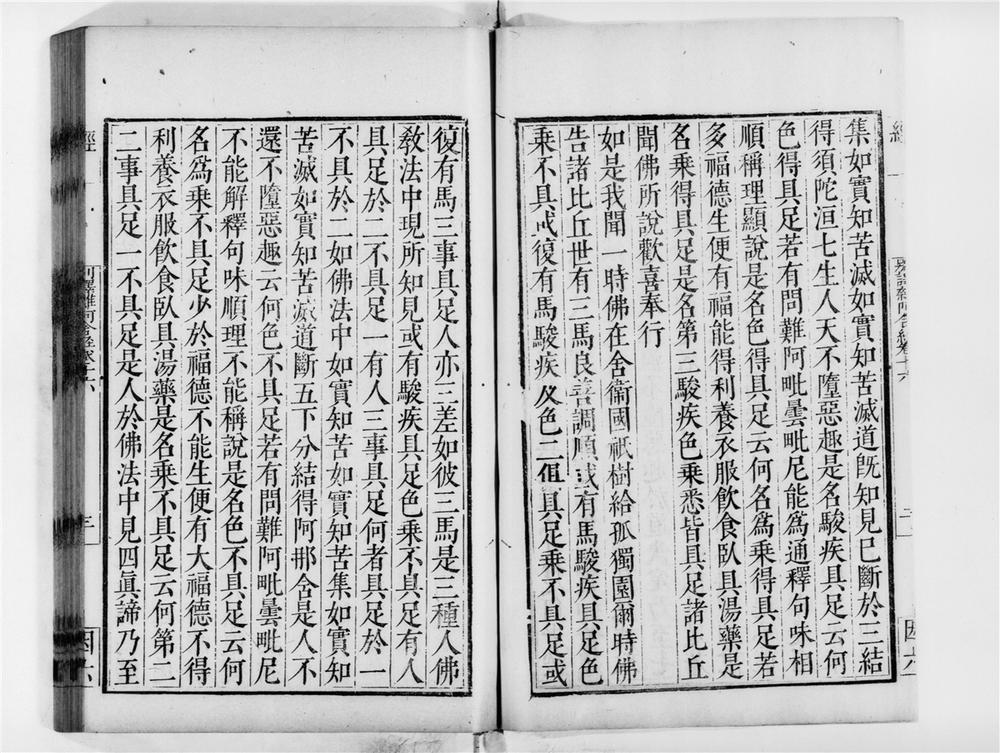 集如實知苦滅如實知苦滅道既知見已斷於三結
得須陀洹七生人天不墮惡趣是名駿疾具足云何
色得具足若有問難阿毗曇毗尼能爲通釋句味相
順稱理顯說是名色得具足云何名爲乘得具足若
多福德生便有福能得利養衣服飲食臥具湯藥是
名乘得具足是名第三駿疾色乘悉皆具足諸比丘
聞佛所說歡喜奉行
如是我聞一時佛在舍衛國祇樹給孤獨園爾時佛
告諸比丘世有三馬良善調順或有馬駿疾具足色
乘不具或復有馬駿疾及色二俱具足乘不具足或
復有馬三事具足人亦三差如彼三馬是三種人佛
教法中現所知見或有駿疾具足色乘不具足有人
具足於二不具足一有人三事具足何者具足於一
不具於二如佛法中如實知苦如實知苦集如實知
苦滅如實知苦滅道斷五下分結得阿那舍是人不
還不墮惡趣云何色不具足若有問難阿毗曇毗尼
不能解釋句味順理不能稱說是名色不具足云何
名爲乘不具足少於福德不能生便有大福德不得
利養衣服飲食臥具湯藥是名乘不具足云何第二
二事具足一不具足是人於佛法中見四眞諦乃至
經
別譯雜阿含經卷十六
三